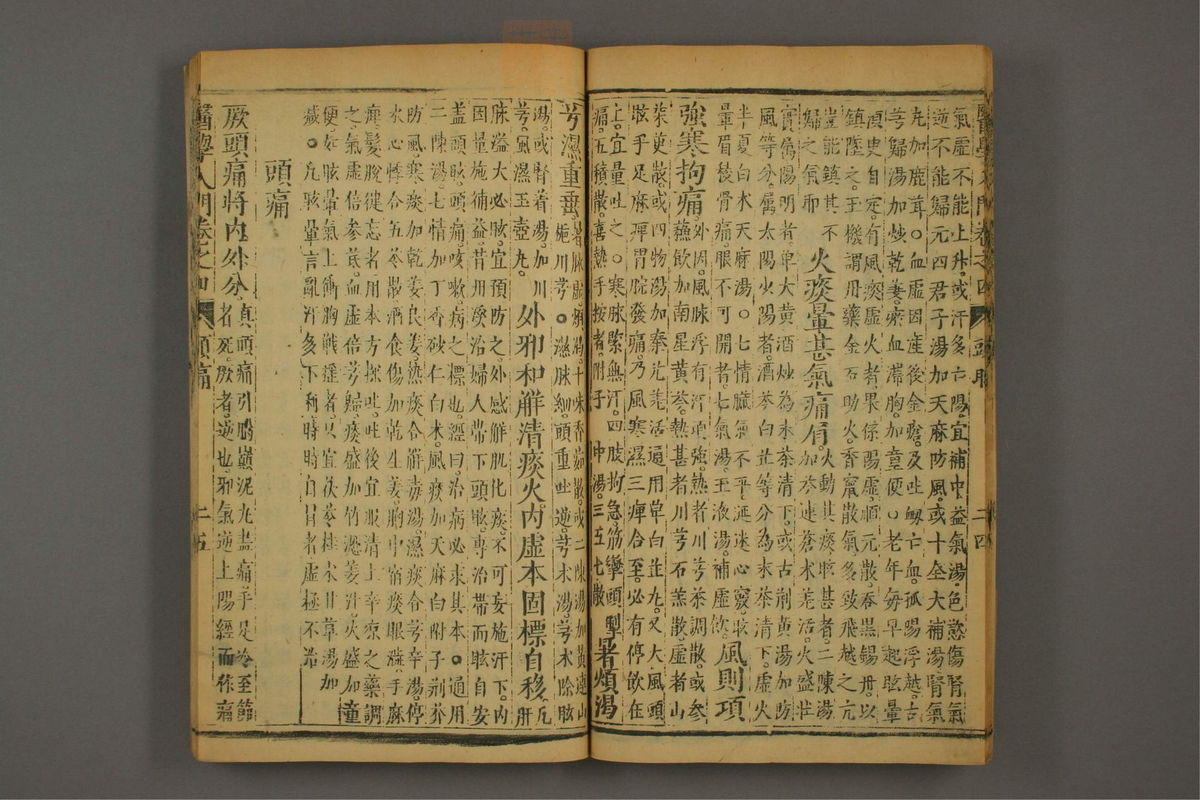 氣虛不能上升或汗多亡陽宜補中益氣湯色慾傷腎氣
逆不能歸元四君子湯加天麻防風或十全大補湯腎氣
丸加鹿茸○血虛因產後金瘡及吐衂亡血孤陽浮越古
芎歸湯加炒乾姜瘀血滯胸加童便○老年每早起眩暈
須臾自定有風痰虛火者果係陽虛順元散吞黑錫丹以
鎮墜之王機謂用藥金石助火香竄散氣多致飛越之亢
豈能鎮其不
歸之氣耶
火痰暈甚氣痛眉
火動其痰眩甚者二陳湯
加芩連蒼术羌活火盛壯
實屬陽明者單大黃酒炒為末茶清下或古荊黃湯加防
風等分屬太陽少陽者酒芩白芷等分為末茶清下虛火
半夏白术天麻湯○七情臟氣不平涎迷心竅眩
暈眉稜骨痛眼不可開者七氣湯玉液湯補虛飲
風則項
強寒拘痛
外因風脉浮有汗項強熱者川芎茶調散或參
蘇飲加南星黃芩熱甚者川芎石羔散虛者山
茱茰散或四物湯加秦艽羌活通用單白芷丸又大風頭
眩手足麻痺胃脘發痛乃風寒濕三痺合至必有停飲在
上宜量吐之○寒脉緊無汗四肢拘急筋攣頭掣
痛五積散喜熱手按者附子仲湯三五七散
暑煩渴
芎濕重垂
暑脉虛煩渴十味香茹散或二陳湯加黃連山
梔川芎○濕脉細頭重吐逆芎术湯芎术除眩
湯或腎着湯加川
芎風濕玉壺丸
外邪和解清痰火內虛本固標自移
凡肝
脉溢大必眩宜預防之外感解肌化痰不可妄施汗下內
因量施補益昔用渙治婦人帶下頭眩專治帶而眩自安
蓋頭眩頭痛咳嗽病之標也經曰治病必求其本○通用
二陳湯七情加丁香砂仁白术風痰加天麻白附子荊芥
防風寒痰加乾姜良姜熱痰合解毒湯濕痰合芎辛湯停
水心悸合五苓散酒食傷加乾生姜胸中宿痰眼澁手麻
痺髮脫健忘者用本方探吐吐後宜服清上辛凉之藥調
之氣虛倍參芪血虛倍芎歸痰盛加竹瀝姜汁火盛加童
便如眩暈氣上衝胸戰搖者只宜茯苓桂朮甘草湯加
減○凡眩暈言亂汗多下利時時自冒者虛極不治
頭痛
厥頭痛將內外分
真頭痛引腦巔泥丸盡痛手足冷至節
者死厥者逆也邪氣逆上陽經而作痛
醫學入門卷之四
頭眩
二四
醫學入門卷之四
頭痛
二五